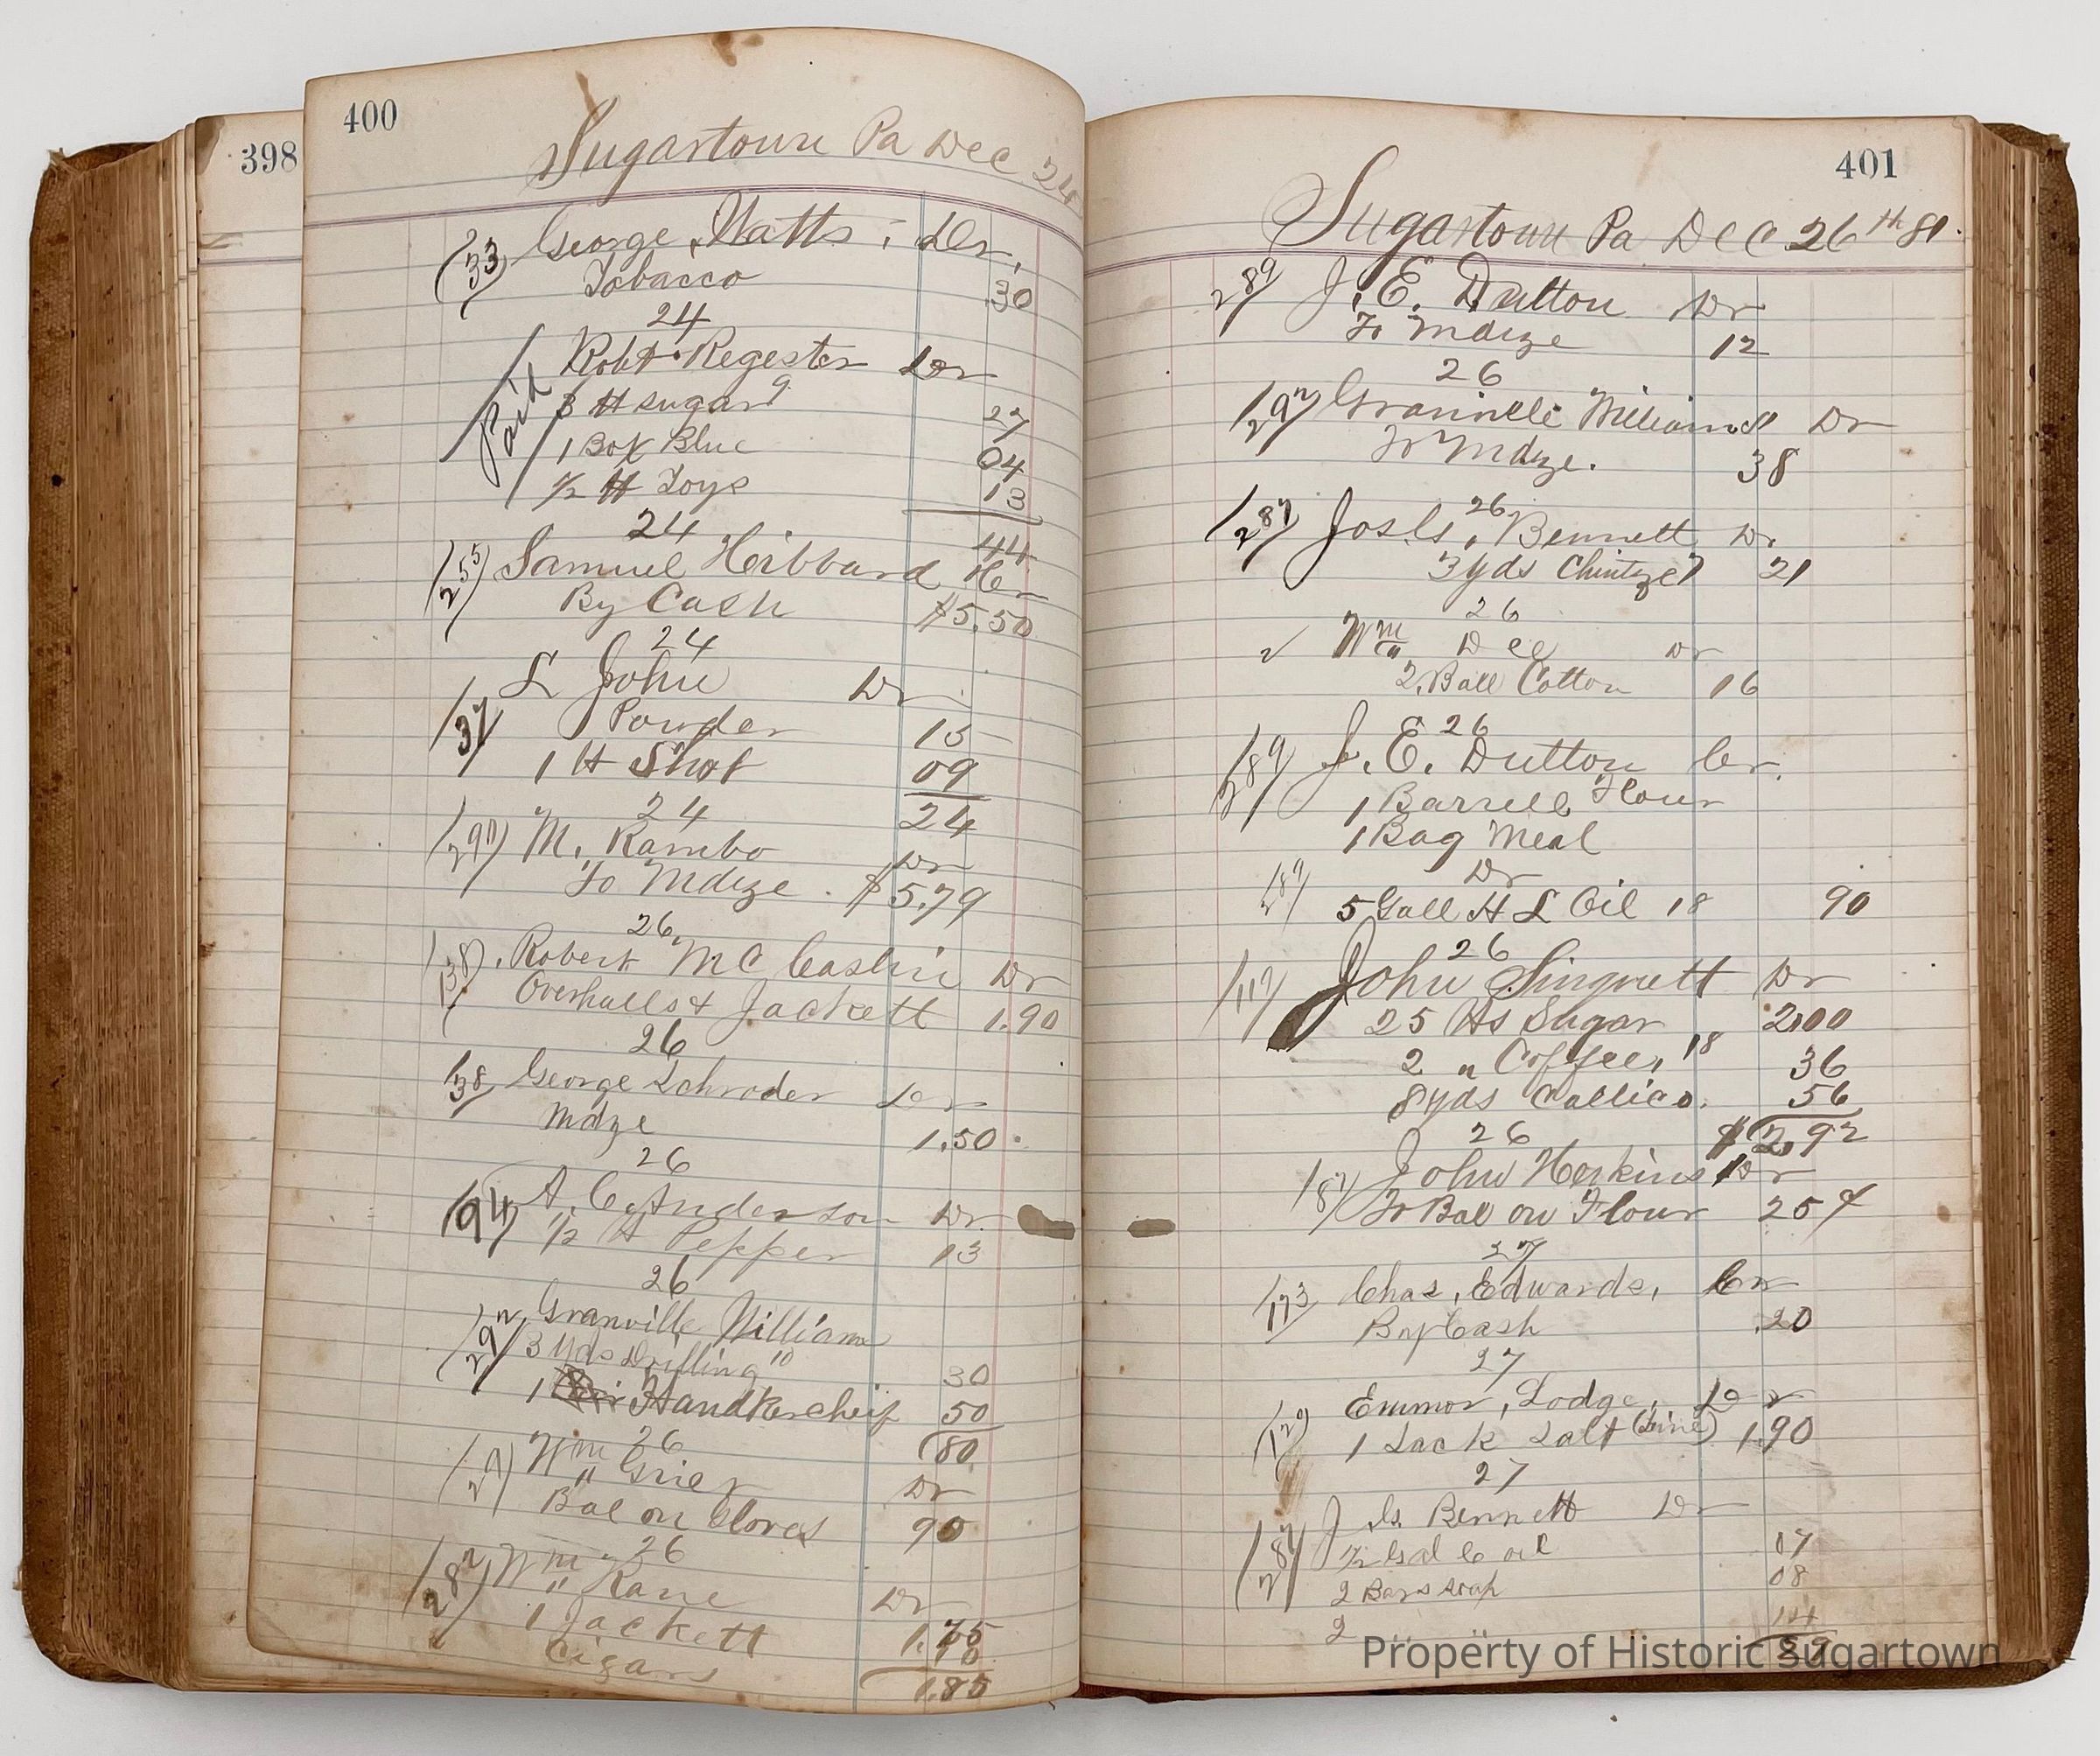 398
400
Sugartown Pa Dec 24
33 George Watts Dr.
Tobacco 30
24
Paid
Robt Regester Dr
3 # sugar 9 27
1 Box Blue 04
1/2 # Toys 13
44
24
255 Samuel Hibbard Cr
By Cash $5.50
24
L John Dr
37 Powder 15
1 # Shot 09
24
24
290 M. Rambo Dr
To Mdze $5.79
26
138 Robert Mc Caslin Dr
Overhalls & Jackett 1.90
26
38 George Schroder Dr
Mdze 1.50
26
194 A. C. Anderson Dr
1/2 # Pepper 13
26
292 Granville William
3 yds Drilling 10 30
1 Handkercheif 50
80
26
Wm Grier Dr
Bal on Gloves 90
26
282 Wm Kane Dr
1 Jackett 1.75
Cigars 10
1.85
401
Sugartown Pa Dec 26th 81.
289 J. E. Dutton Dr
To Mdze 12
26
292 Granville Williams Dr
To Mdze. 38
26
287 Jos G. Bennett Dr
3 yds Chintze 7 21
26
Wm Dee Dr
2 Ball Cotton 16
26
289 J. E. Dutton Cr.
1 Barrell Flour
1 Bag Meal
Dr
289 5 Gall H L Oil 18 90
26
117 John Singvett Dr
25 #s Sugar 2.00
2 " Coffee, 18 36
8 yds Callico. 56
$2.92
26
187 John Hoskins Dr
To Bal on Flour 25 ¢
27
173 Chas. Edwards, Cr
By Cash .20
27
129 Emmor Lodge, Dr
1 Sack Salt (fine) 1.90
27
287 J. G. Bennett Dr
1/2 Gal C oil 07
2 Bars soap 08
2 " " 14
29
Property of Historic Sugartown